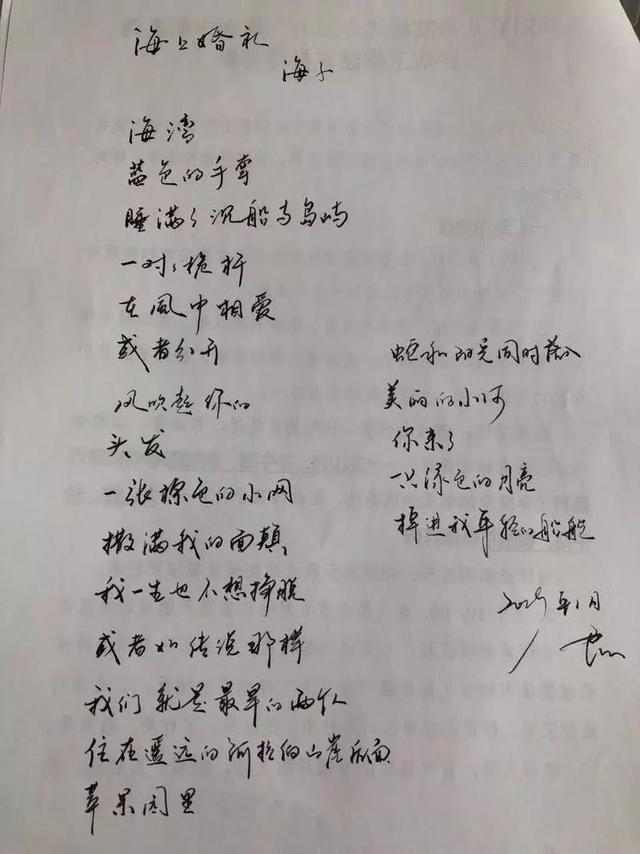 海上婚礼
海子
海湾
蓝色的手掌
睡满了沉船与岛屿
一对对桅杆
在風中相爱
或者分开
风吹起你的
头发
一张棕色的小网
撒满我的面颊
我一生也不想挣脱
或者如传说那样
我们就是最早的两个人
住在遥远的阿拉伯山崖后面
苹果园里
蛇和阳光同时落入
美丽的小河
你来了
一只绿色的月亮
掉进我年轻的船舱
2025年1月